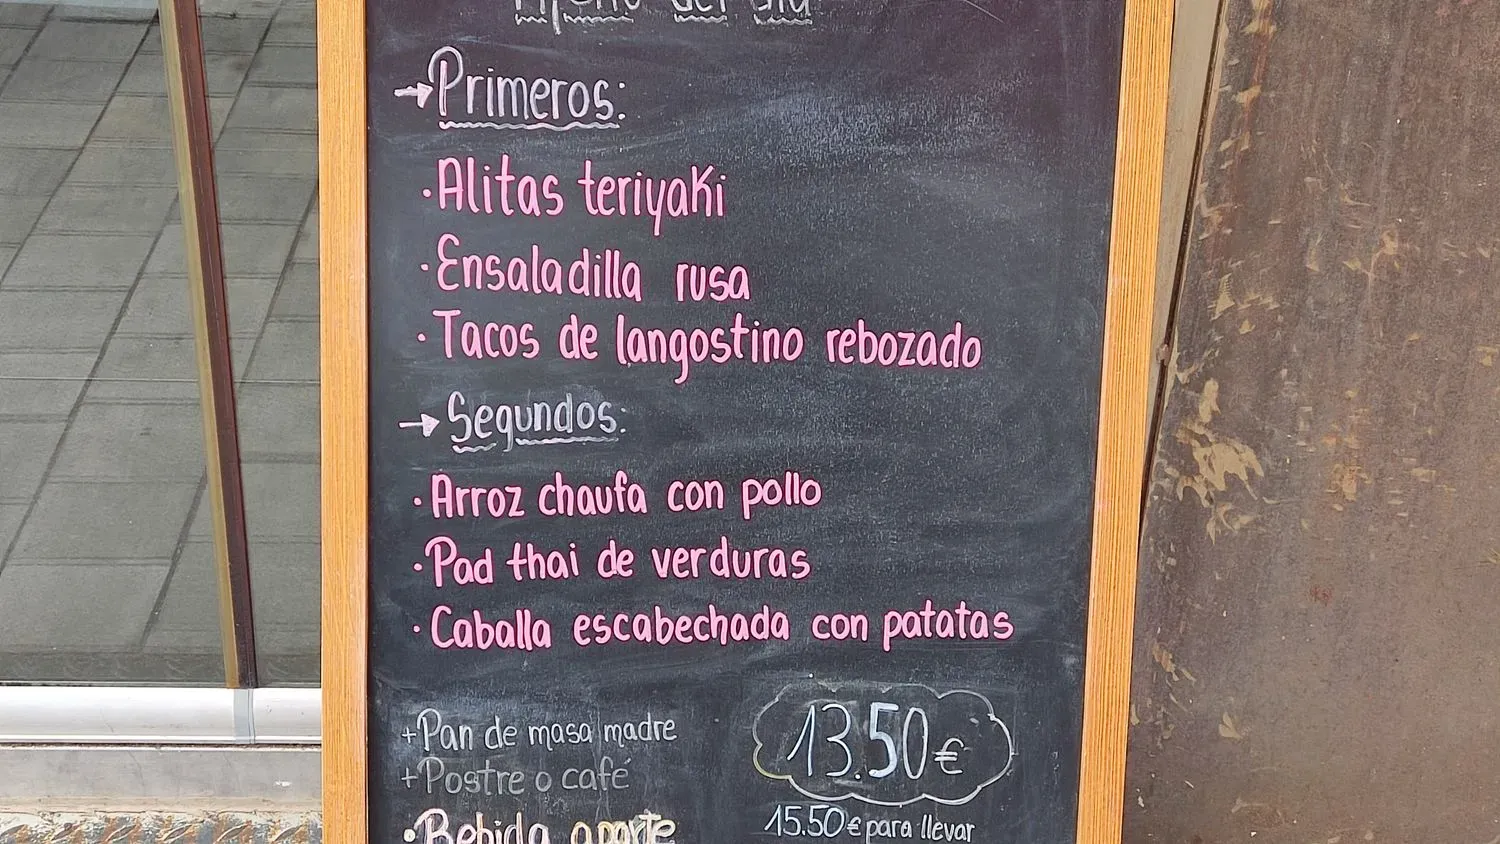 Menú del día
→Primeros:
·Alitas teriyaki
·Ensaladilla rusa
·Tacos de langostino rebozado
→Segundos:
·Arroz chaufa con pollo
·Pad thai de verduras
·Caballa escabechada con patatas
+Pan de masa madre
+Postre o café
·Bebida aparte
13.50€
15.50€ para llevar